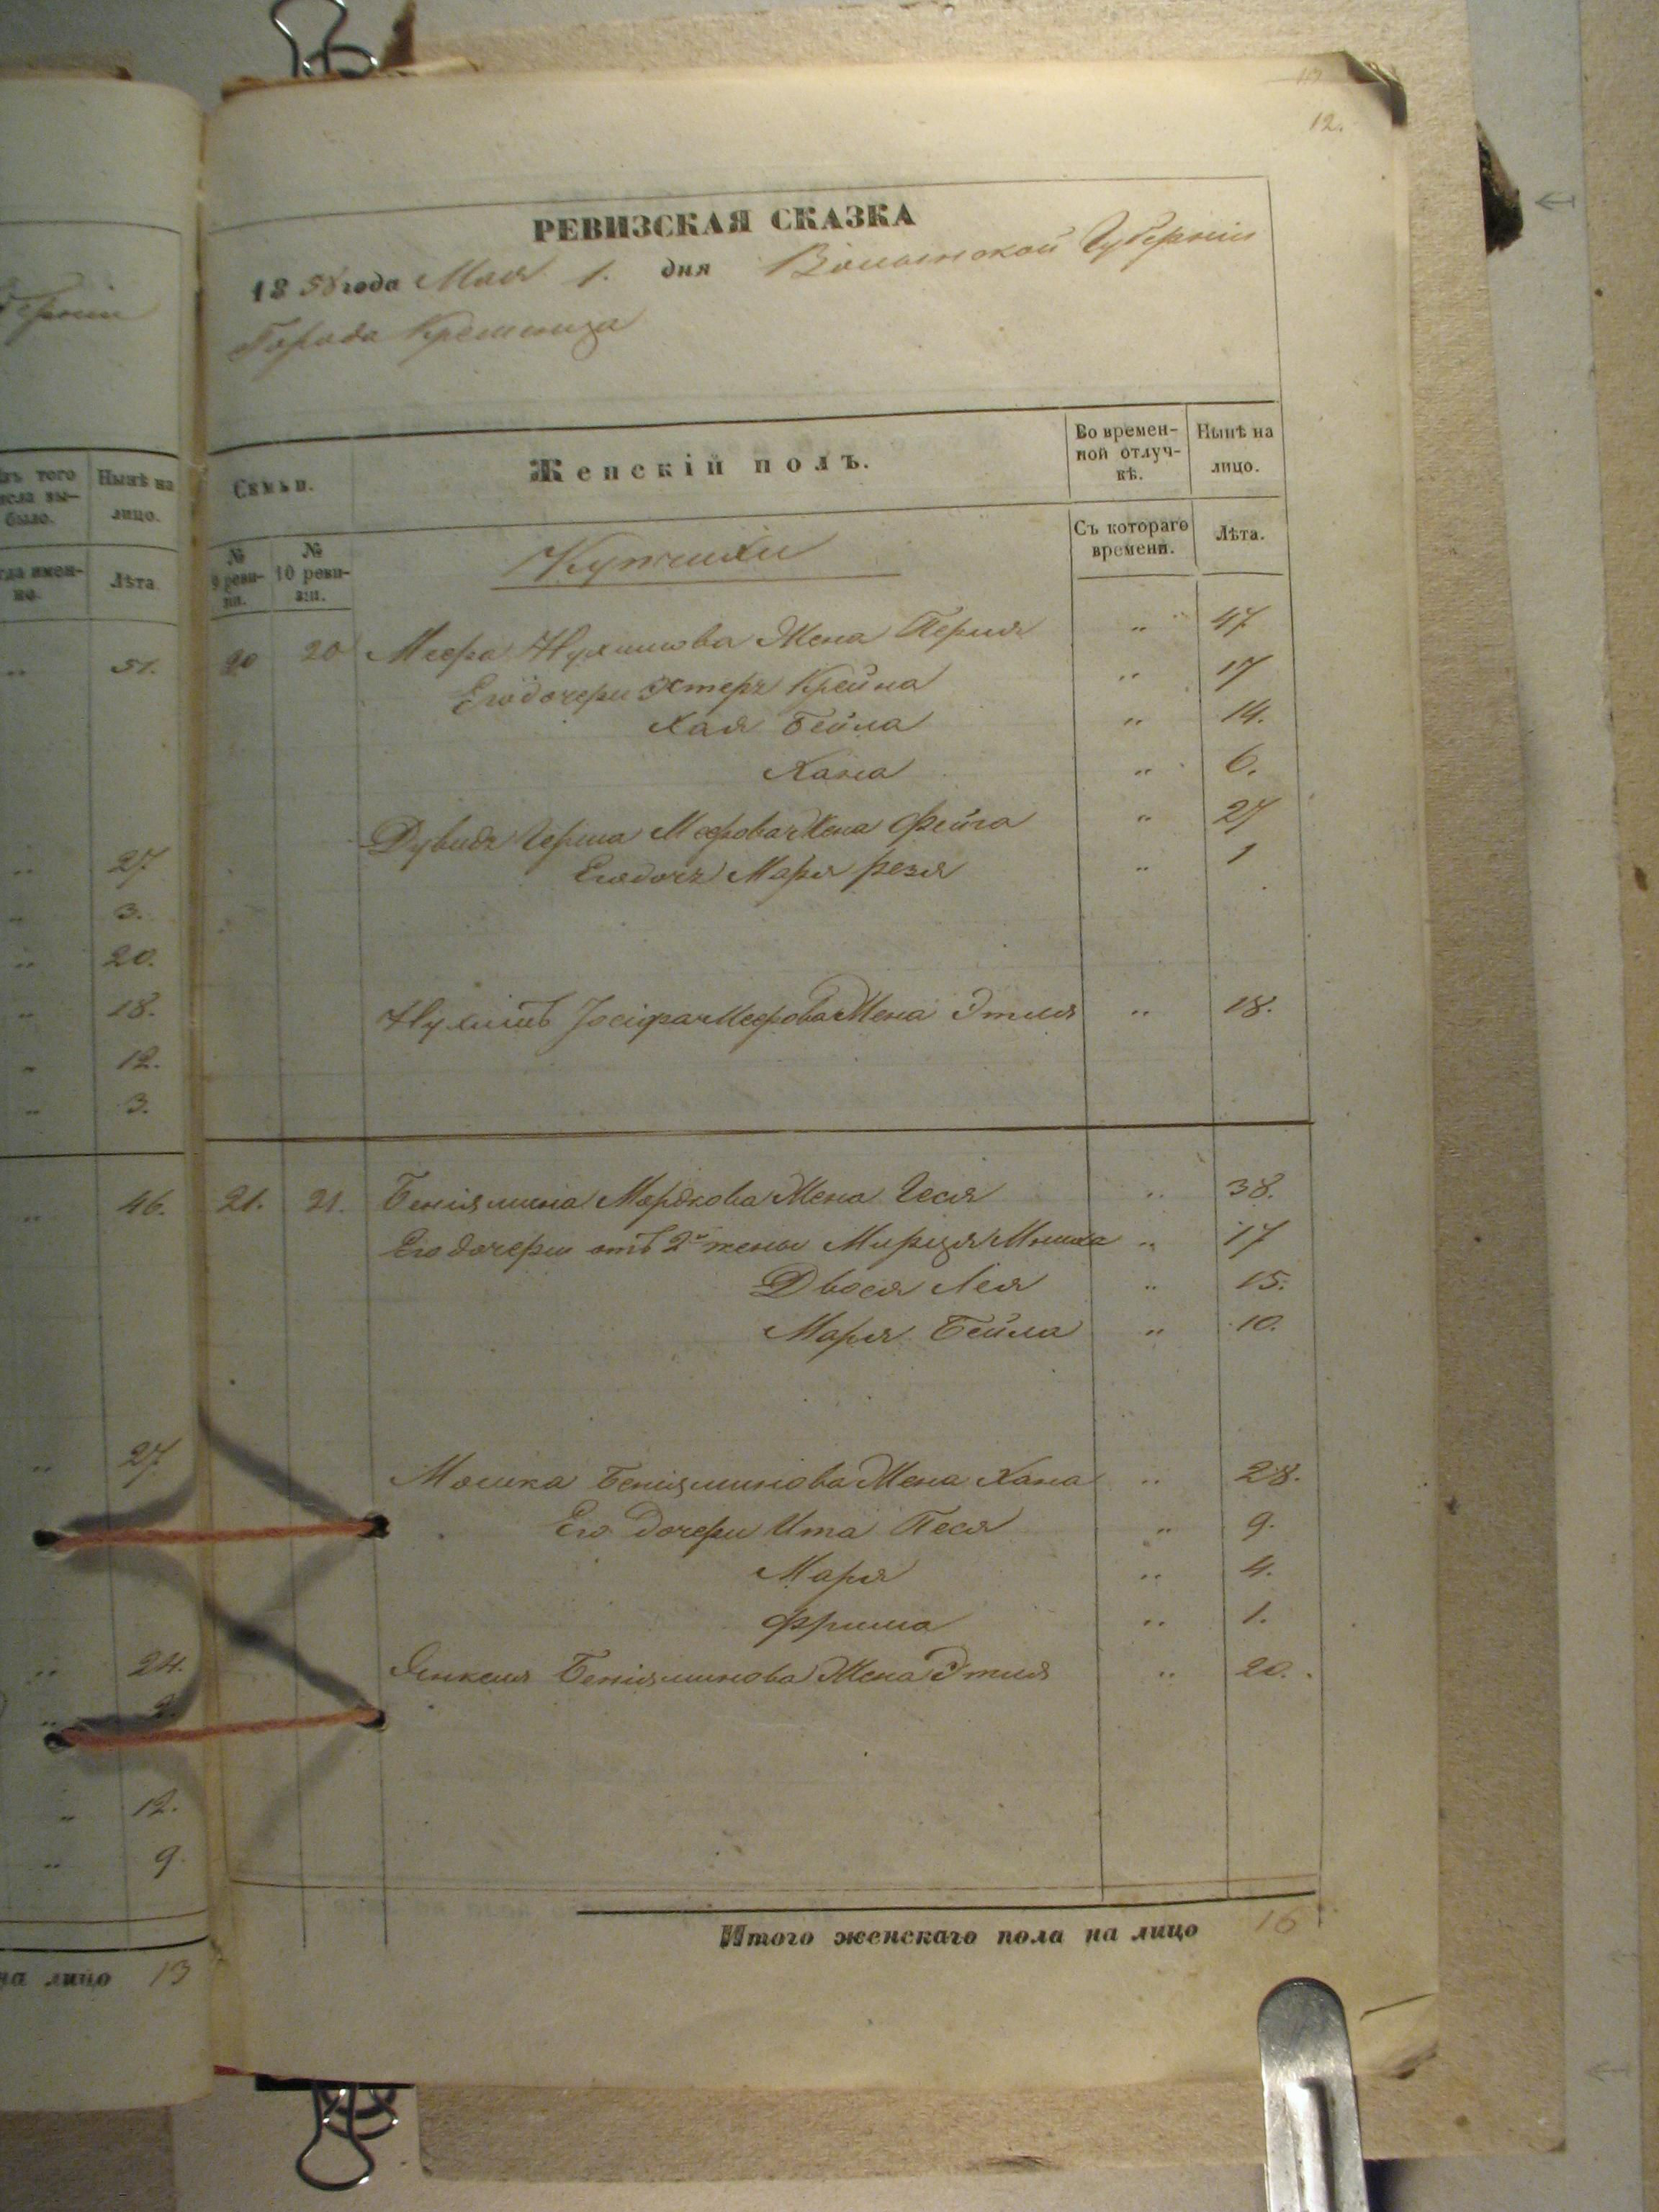 12.
РЕВИЗСКАЯ СКАЗКА
1858 года Мая 1. дня Волынской Губерніи
Города Кременца
Семьи.
Женскій полъ.
Во времен-
ной отлуч-
кѣ.
Нынѣ на
лицо.
№
9 реви-
зіи.
№
10 реви-
зіи.
Съ котораго
времени.
Лѣта.
Купчихи
20 20 Меера Нухимова Жена Перля " 47
Его дочери Эстеръ Крейна " 17
Хая Бейла " 14.
Хана " 6.
Дувидъ Герша Меерова Жена Фейга " 27
Его дочь Маря Резя " 1
Нухимъ Іосіфа Меерова Жена Этля " 18.
21. 21. Беніямина Мордкова Жена Геся " 38.
Его дочери отъ 2й жены Мирця " 17
Двося Лея " 15.
Маря Бейла " 10.
Мошка Беніяминова Жена Хана " 28.
Его Дочери Ита Песя " 9.
Маря " 4.
Фрима " 1.
Янкеля Беніяминова Жена Этля " 20.
Итого женскаго пола на лицо 16
ерніи
Изъ того
числа вы-
было.
Нынѣ на
лицо.
Лѣта.
" 51.
" 27
" 3.
" 20.
" 18.
" 12.
" 3.
" 46.
" 27
" 24.
" 12.
" 9
на лицо 13